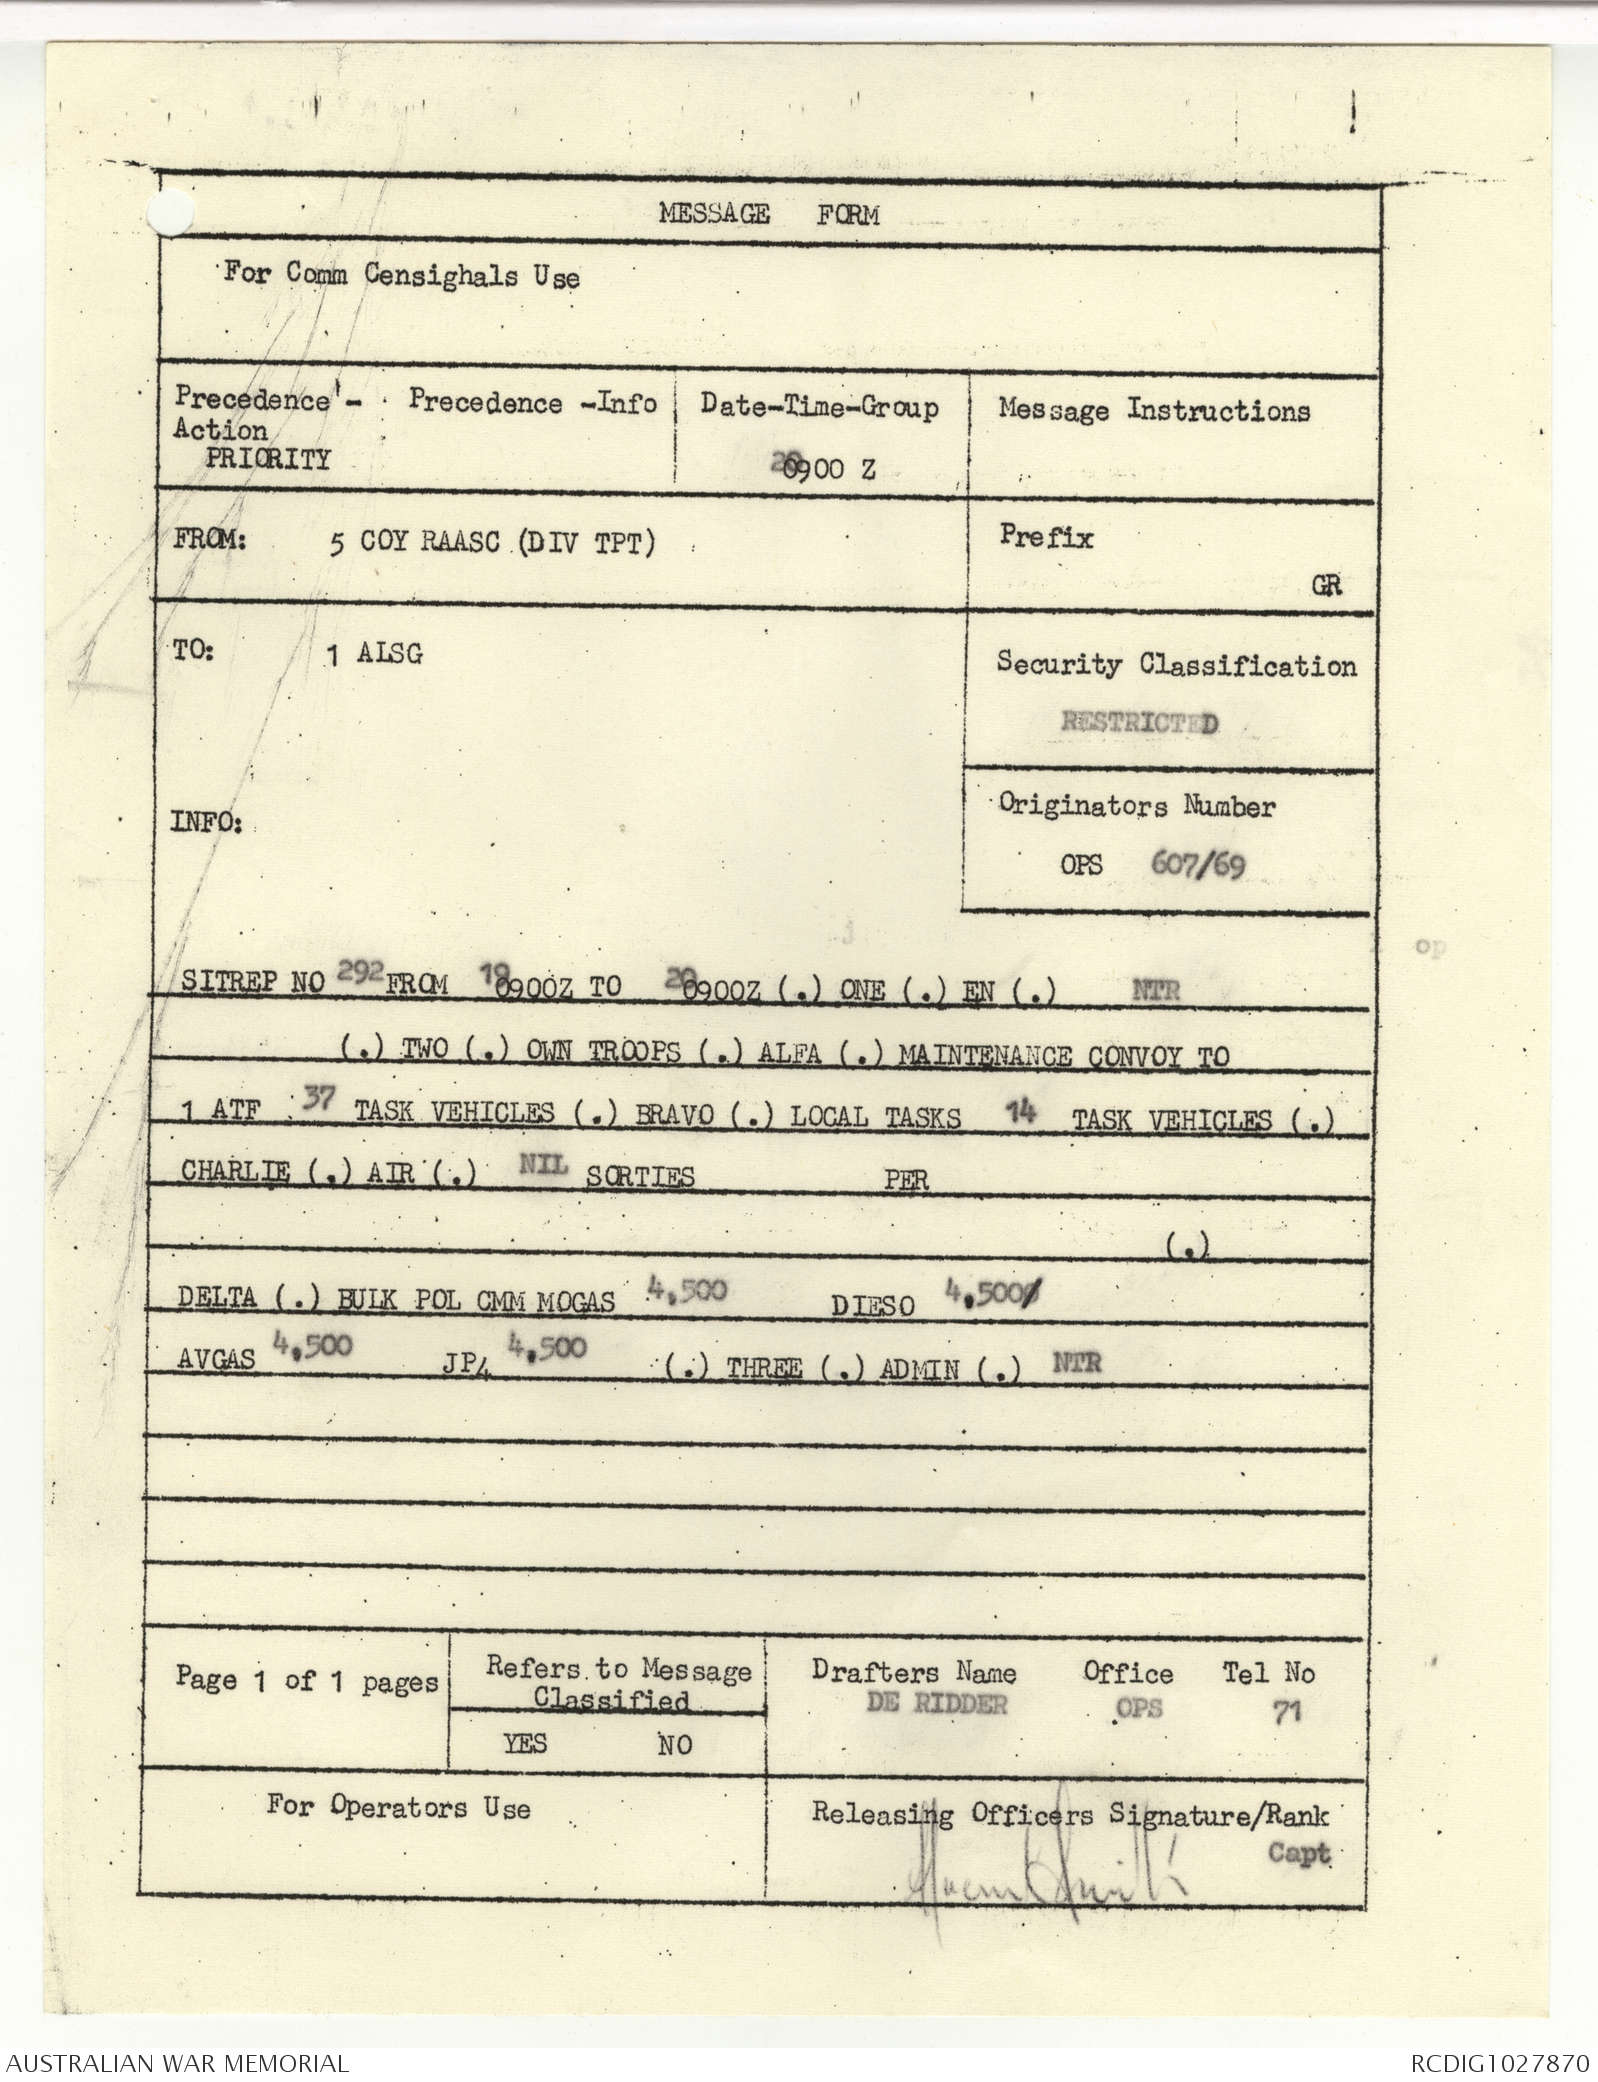 MESSAGE FORM
For Comm Censighals Use
Precedence - Precedence -Info Date-Time-Group Message Instructions
Action
PRIORITY 200900 Z
FROM: 5 COY RAASC (DIV TPT) Prefix
GR
TO: 1 ALSG Security Classification
RESTRICTED
INFO: Originators Number
OPS 607/69
op
SITREP NO 292 FROM 190900Z TO 200900Z (.) ONE (.) EN (.) NTR
(.) TWO (.) OWN TROOPS (.) ALFA (.) MAINTENANCE CONVOY TO
1 ATF 37 TASK VEHICLES (.) BRAVO (.) LOCAL TASKS 14 TASK VEHICLES (.)
CHARLIE (.) AIR (.) NIL SORTIES PER
(.)
DELTA (.) BULK POL CMM MOGAS 4,500 DIESO 4,500/
AVGAS 4,500 JP4 4,500 (.) THREE (.) ADMIN (.) NTR
Page 1 of 1 pages Refers to Message Drafters Name Office Tel No
Classified DE RIDDER OPS 71
YES NO
For Operators Use Releasing Officers Signature/Rank
Capt
AUSTRALIAN WAR MEMORIAL RCDIG1027870